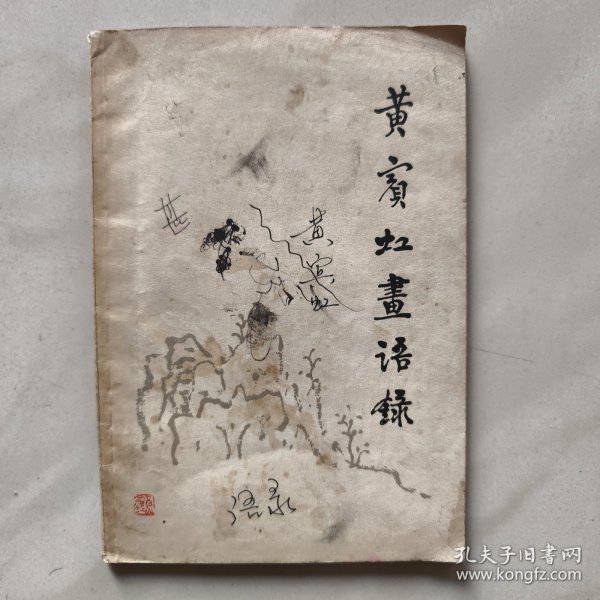 黄宾虹畫语錄
黄宾虹
语录
孔夫子旧书网
www.kongfz.com